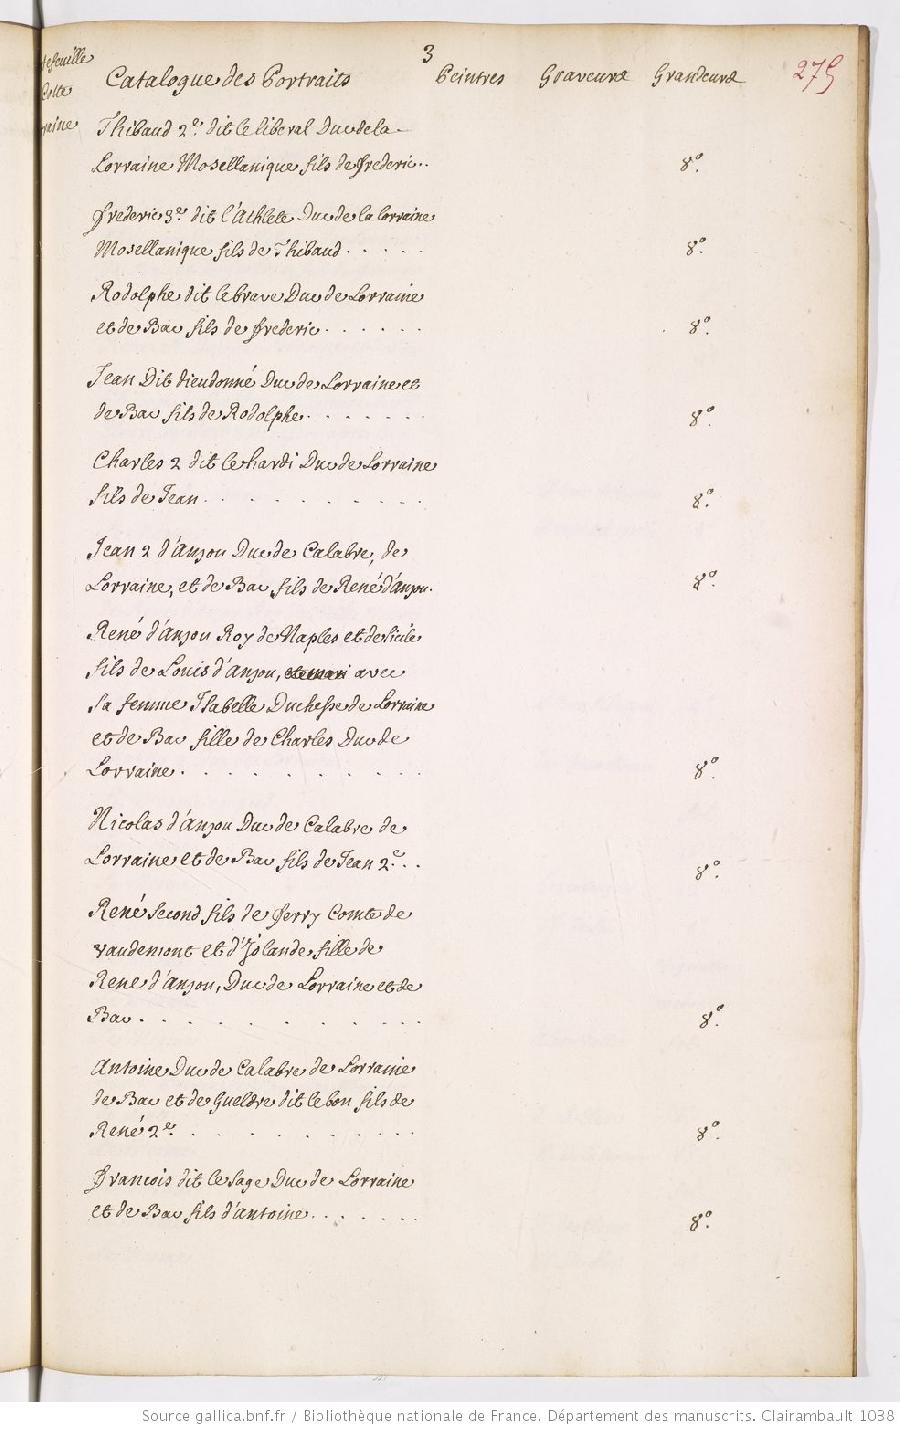 3
275
Catalogue des Portraits Peintres Graveurs Grandeurs
Thibaud 2.e dit le liberal Duc de la
Lorraine Mosellanique fils de frederic.. 8.o
frederic 3.e dit l'Athlete Duc de la lorraine
Mosellanique fils de Thibaud . . . . . 8.o
Rodolphe dit le brave Duc de Lorraine
et de Bar fils de frederic . . . . . . 8.o
Jean Dit dieudonné Duc de Lorraine et
de Bar fils de Rodolphe. . . . . . . 8.o
Charles 2 dit le hardi Duc de Lorraine
fils de Jean . . . . . . . . 8.o
Jean 2 d'anjou Duc de Calabre, de
Lorraine, et de Bar, fils de René d'anjou. 8.o
René d'anjou Roy de Naples et de sicile
fils de Louis d'anjou, avec
sa femme Isabelle Duchesse de Lorraine
et de Bar fille de Charles Duc de
Lorraine . . . . . . . . 8.o
Nicolas d'anjou Duc de Calabre de
Lorraine et de Bar, fils de Jean 2.e . . 8.o
René second fils de ferry Comte de
vaudemont et d'Jolande fille de
René d'anjou, Duc de Lorraine et de
Bar . . . . . . . . . 8.o
Antoine Duc de Calabre de Lorraine
de Bar et de Gueldre dit le bon fils de
René 2.e . . . . . . . 8.o
francois dit le sage Duc de Lorraine
et de Bar fils d'antoine . . . . . . 8.o
Source gallica.bnf.fr / Bibliothèque nationale de France. Département des manuscrits. Clairambault 1038